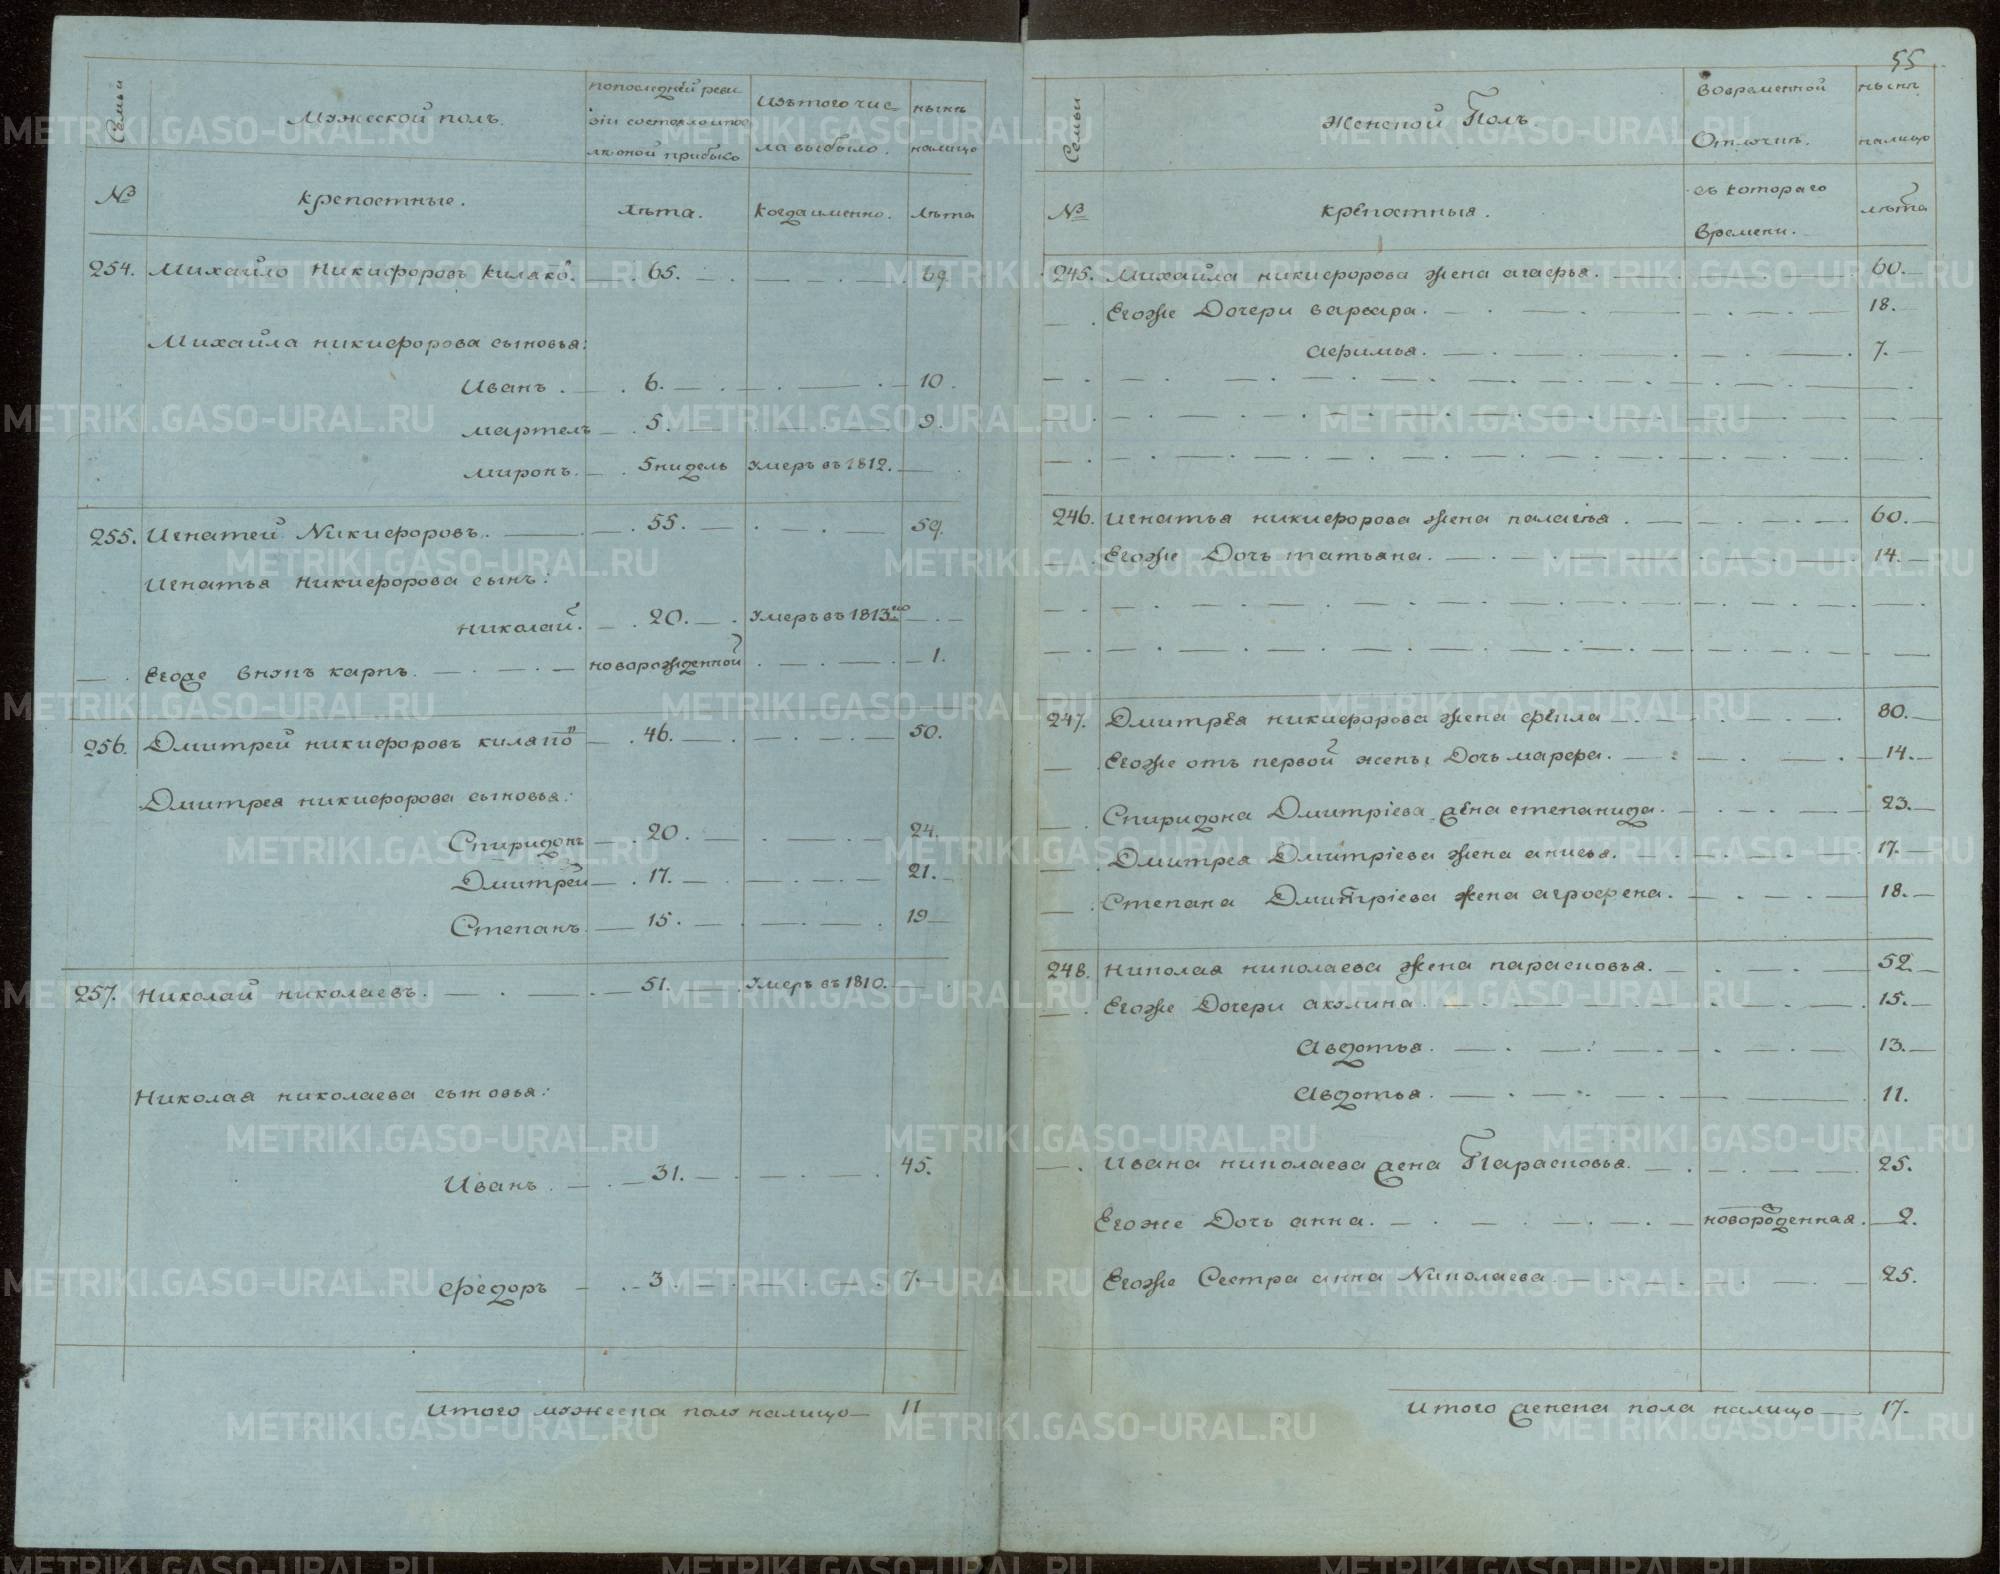 55
Семьи
Мужеской полъ.
попоследнѣй реви
зіи состояло ипос
лѣ оной прибыло
Изътого чис
ла выбыло.
нынѣ
налицо
№
крепостные.
Лѣта.
Когда именно.
Лѣта
254. Михайло Никифоровъ килако. 65. 69
Михайла никифорова сыновья:
Иванъ. 6. 10.
мартелъ 5. 9.
миронъ. 5 нидель Умеръ въ 1812.
255. Игнатей Никифоровъ. 55. 59.
Игнатья Никифорова сынъ:
николай. 20. Умеръ въ 1813го
Егоже внукъ карпъ. новорожденной 1.
256. Дмитрей никифоровъ килапо 46. 50.
Дмитрея никифорова сыновья:
Спиридонъ 20. 24.
Дмитрей 17. 21.
Степанъ. 15. 19
257. Николай николаевъ. 51. Умеръ въ 1810.
Николая николаева сыновья:
Иванъ. 31. 45.
Федоръ 3. 7.
Итого мужеска полу налицо 11
Семьи
Женской Полъ
вовременной
Отлучкѣ.
нынѣ
налицо
№
крепостныя.
съ котораго
времени.
лѣта
245. Михайла никифорова жена агафья. 60.
Егоже Дочери варвара. 18.
афимья. 7.
246. Игнатья никифорова жена палагѣя. 60.
Егоже Дочь татьяна. 14.
247. Дмитрея никифорова жена фекла 80.
Егоже отъ первой жены Дочь марфа. 14.
Спиридона Дмитріева жена степанида. 23.
Дмитрея Дмитріева жена анисья. 17.
Степана Дмитріева жена агрофена. 18.
248. Николая николаева жена парасковья. 52.
Егоже Дочери акулина. 15.
Авдотья. 13.
Авдотья. 11.
Ивана николаева жена Парасковья. 25.
Егоже Дочь анна. новорожденная. 2.
Егоже Сестра анна Николаева 25.
Итого женска пола налицо 17.
METRIKI.GASO-URAL.RU